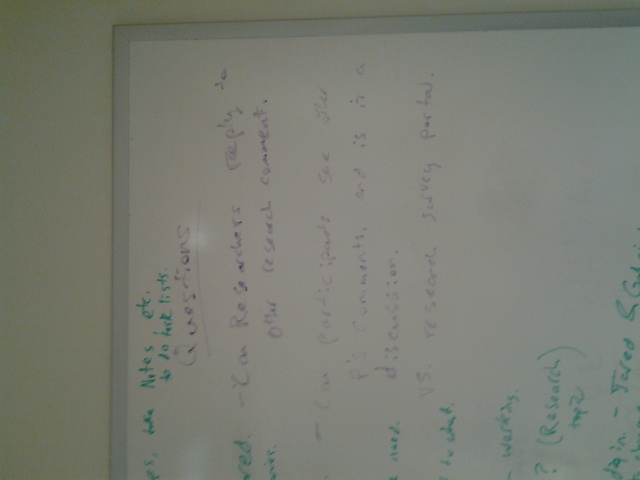 Notes, etc.
to do task lists.
Questions
- Can Researchers reply to
other research comment.
- Can participants see other
P's comments, and is it a
discussion.
vs. research survey portal.
need.
to what.
working.
? (Research)
- Jared &